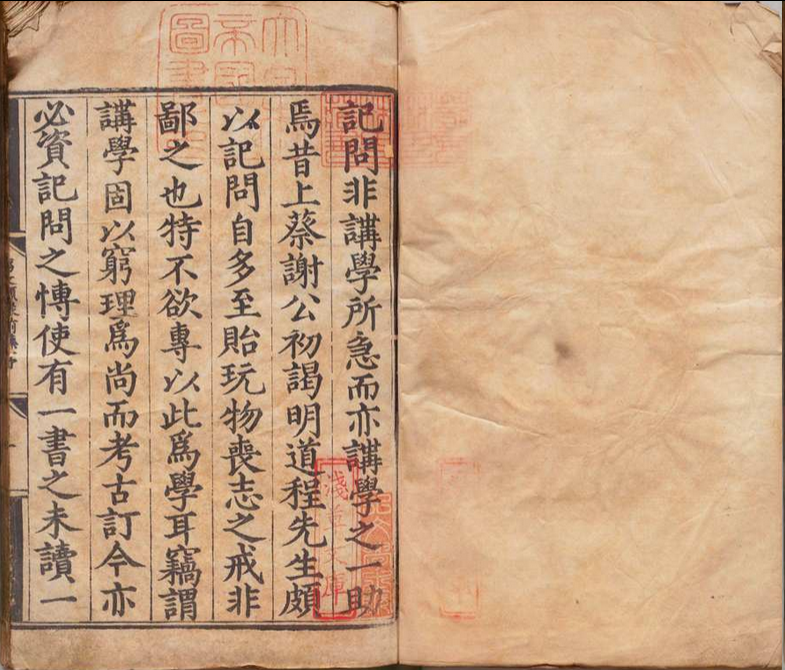 記問非講學所急而亦講學之一助
焉昔上蔡謝公初謁明道程先生頗
以記問自多至貽玩物喪志之戒非
鄙之也特不欲專以此爲學耳竊謂
講學固以窮理爲尚而考古訂今亦
必資記問之愽使有一書之未讀一
淺草文庫